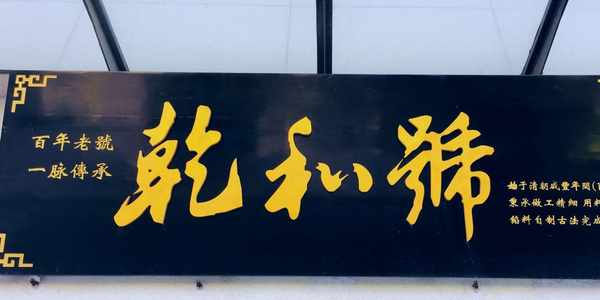 百年老號
一脉傳承
乾和號
始于清朝咸豐年間(
秉承做工精細 用料
餡料自制古法完成